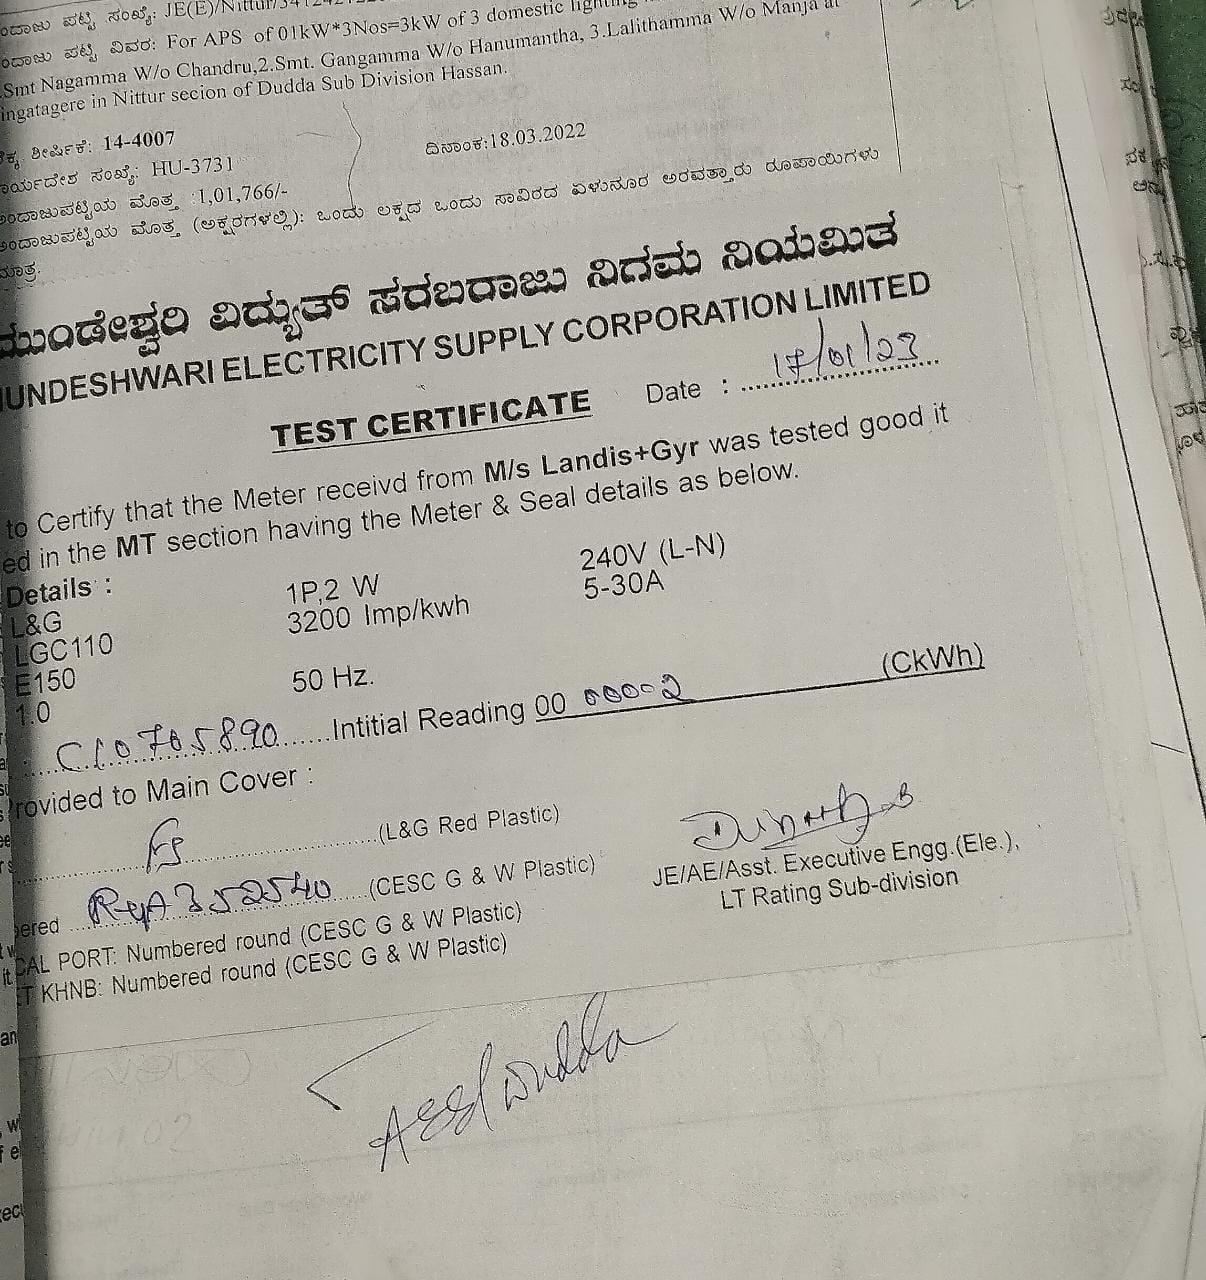 ಪಟ್ಟಿ ಸಂಖ್ಯೆ: JE(E)/Nittur/
ಪಟ್ಟಿ ವಿವರ: For APS of 01kW*3Nos=3kW of 3 domestic lighting
Smt Nagamma W/o Chandru,2.Smt. Gangamma W/o Hanumantha, 3.Lalithamma W/o Manja at
ingatagere in Nittur secion of Dudda Sub Division Hassan.
ಶೀರ್ಷಿಕೆ: 14-4007
ದಿನಾಂಕ:18.03.2022
ಸಂಖ್ಯೆ: HU-3731
ಅಂದಾಜುಪಟ್ಟಿಯ ಮೊತ್ತ :1,01,766/-
ಅಂದಾಜುಪಟ್ಟಿಯ ಮೊತ್ತ (ಅಕ್ಷರಗಳಲ್ಲಿ): ಒಂದು ಲಕ್ಷದ ಒಂದು ಸಾವಿರದ ಏಳುನೂರ ಅರವತ್ತಾರು ರೂಪಾಯಿಗಳು
ಮಾತ್ರ.
ಮುಂಡೇಶ್ವರಿ ವಿದ್ಯುತ್ ಸರಬರಾಜು ನಿಗಮ ನಿಯಮಿತ
UNDESHWARI ELECTRICITY SUPPLY CORPORATION LIMITED
TEST CERTIFICATE Date : 17/01/23
to Certify that the Meter receivd from M/s Landis+Gyr was tested good it
ed in the MT section having the Meter & Seal details as below.
Details :
L&G 1P,2 W 240V (L-N)
LGC110 3200 Imp/kwh 5-30A
E150
1.0 50 Hz.
C10705890 Intitial Reading 00 00002 (CkWh)
rovided to Main Cover :
(L&G Red Plastic)
ered 352540 (CESC G & W Plastic)
JE/AE/Asst. Executive Engg.(Ele.),
LT Rating Sub-division
CAL PORT: Numbered round (CESC G & W Plastic)
ET KHNB: Numbered round (CESC G & W Plastic)